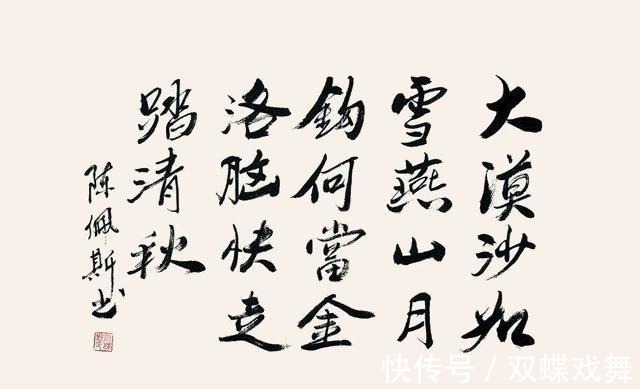 大漠沙如
雪燕山月
鈎何當金
洛脑快走
踏清秋
陈佩斯书
快传号 / 双蝶戏舞